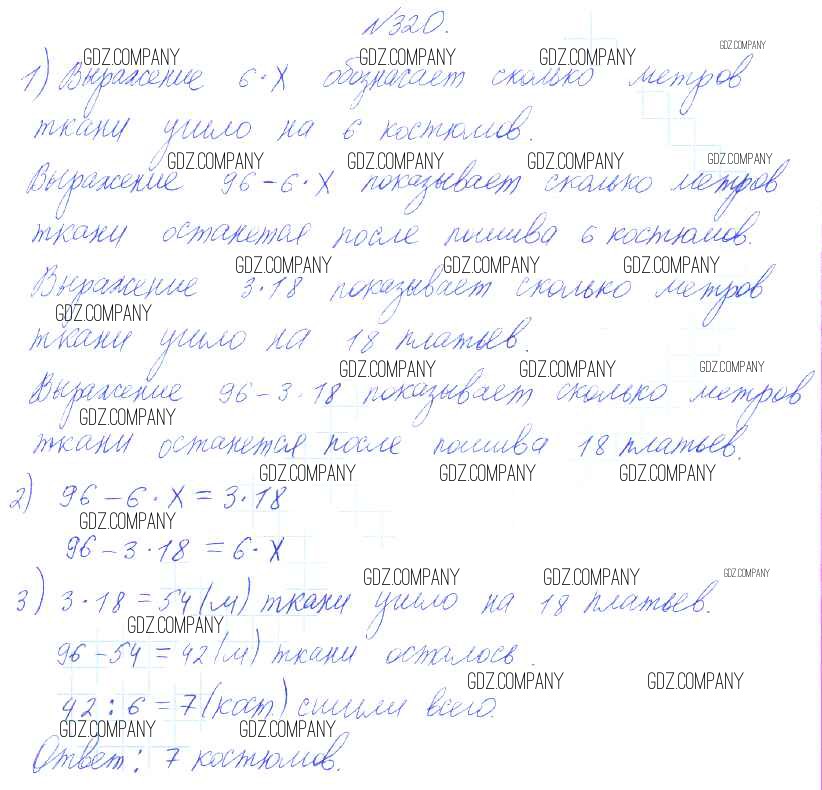 №320.
1) Выражение 6·X обозначает сколько метров
ткани ушло на 6 костюмов.
Выражение 96-6·X показывает сколько метров
ткани останется после пошива 6 костюмов.
Выражение 3·18 показывает сколько метров
ткани ушло на 18 платьев.
Выражение 96-3·18 показывает сколько метров
ткани останется после пошива 18 платьев.
2) 96-6·X=3·18
96-3·18=6·X
3) 3·18=54(м) ткани ушло на 18 платьев.
96-54=42(м) ткани осталось.
42:6=7(кост.) сшили всего.
Ответ: 7 костюмов.
GDZ.COMPANY GDZ.COMPANY GDZ.COMPANY GDZ.COMPANY
GDZ.COMPANY GDZ.COMPANY GDZ.COMPANY GDZ.COMPANY
GDZ.COMPANY GDZ.COMPANY GDZ.COMPANY
GDZ.COMPANY
GDZ.COMPANY GDZ.COMPANY GDZ.COMPANY
GDZ.COMPANY
GDZ.COMPANY GDZ.COMPANY GDZ.COMPANY
GDZ.COMPANY
GDZ.COMPANY GDZ.COMPANY GDZ.COMPANY
GDZ.COMPANY
GDZ.COMPANY GDZ.COMPANY
GDZ.COMPANY GDZ.COMPANY